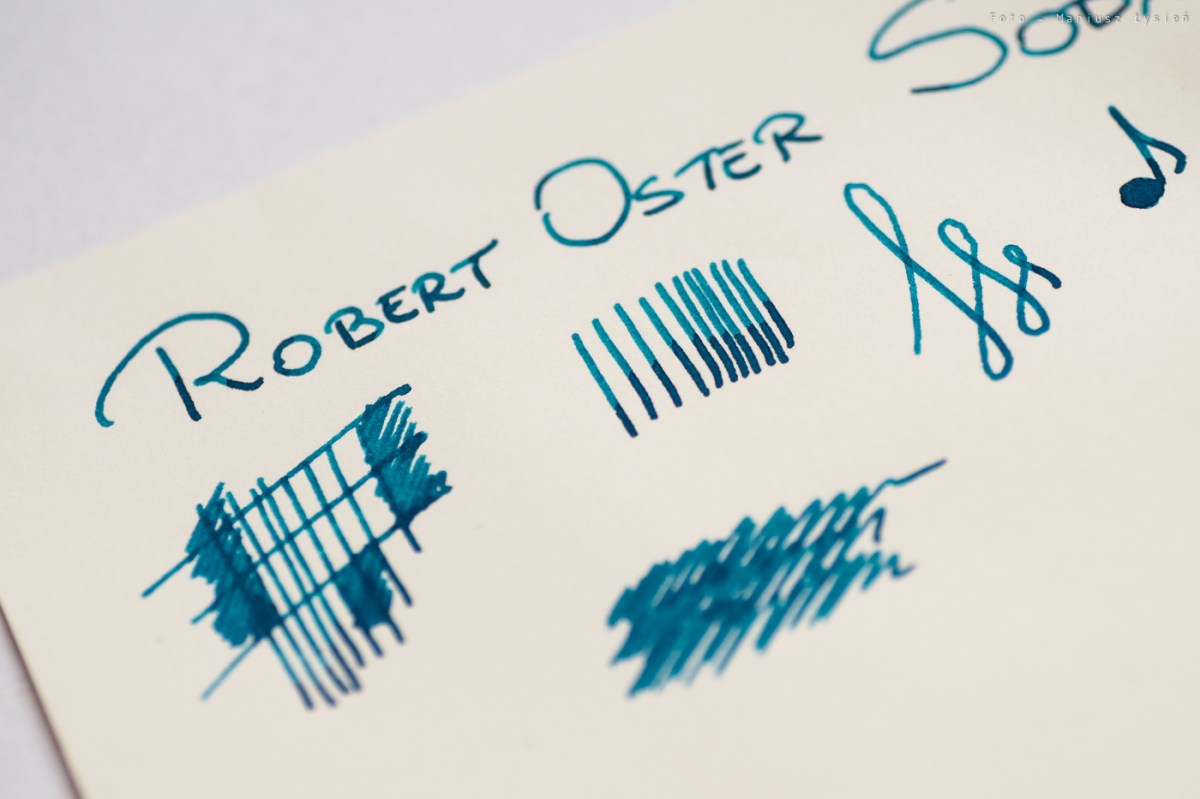 Foto - Mariusz Łysień
ROBERT OSTER